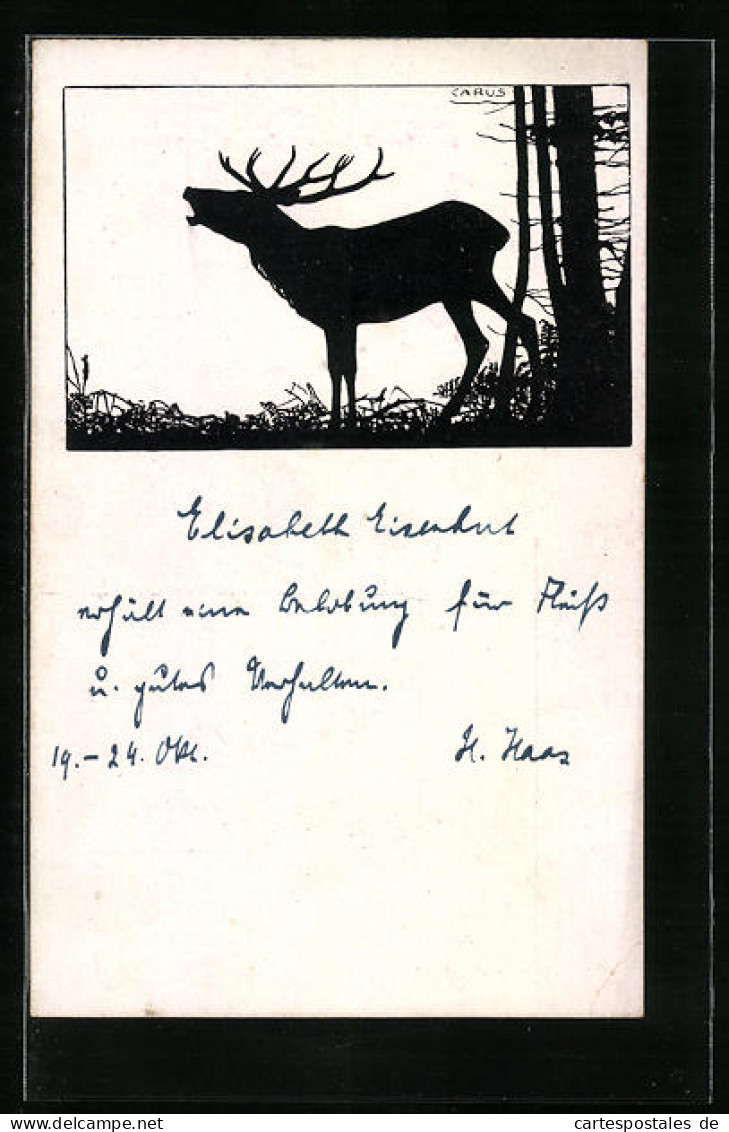 CARUS
Elisabeth Eisenhut
erhält eine Belobung für Fleiß
u. gutes Verhalten.
19.-24. Okt.
H. Haas
cartespostales de